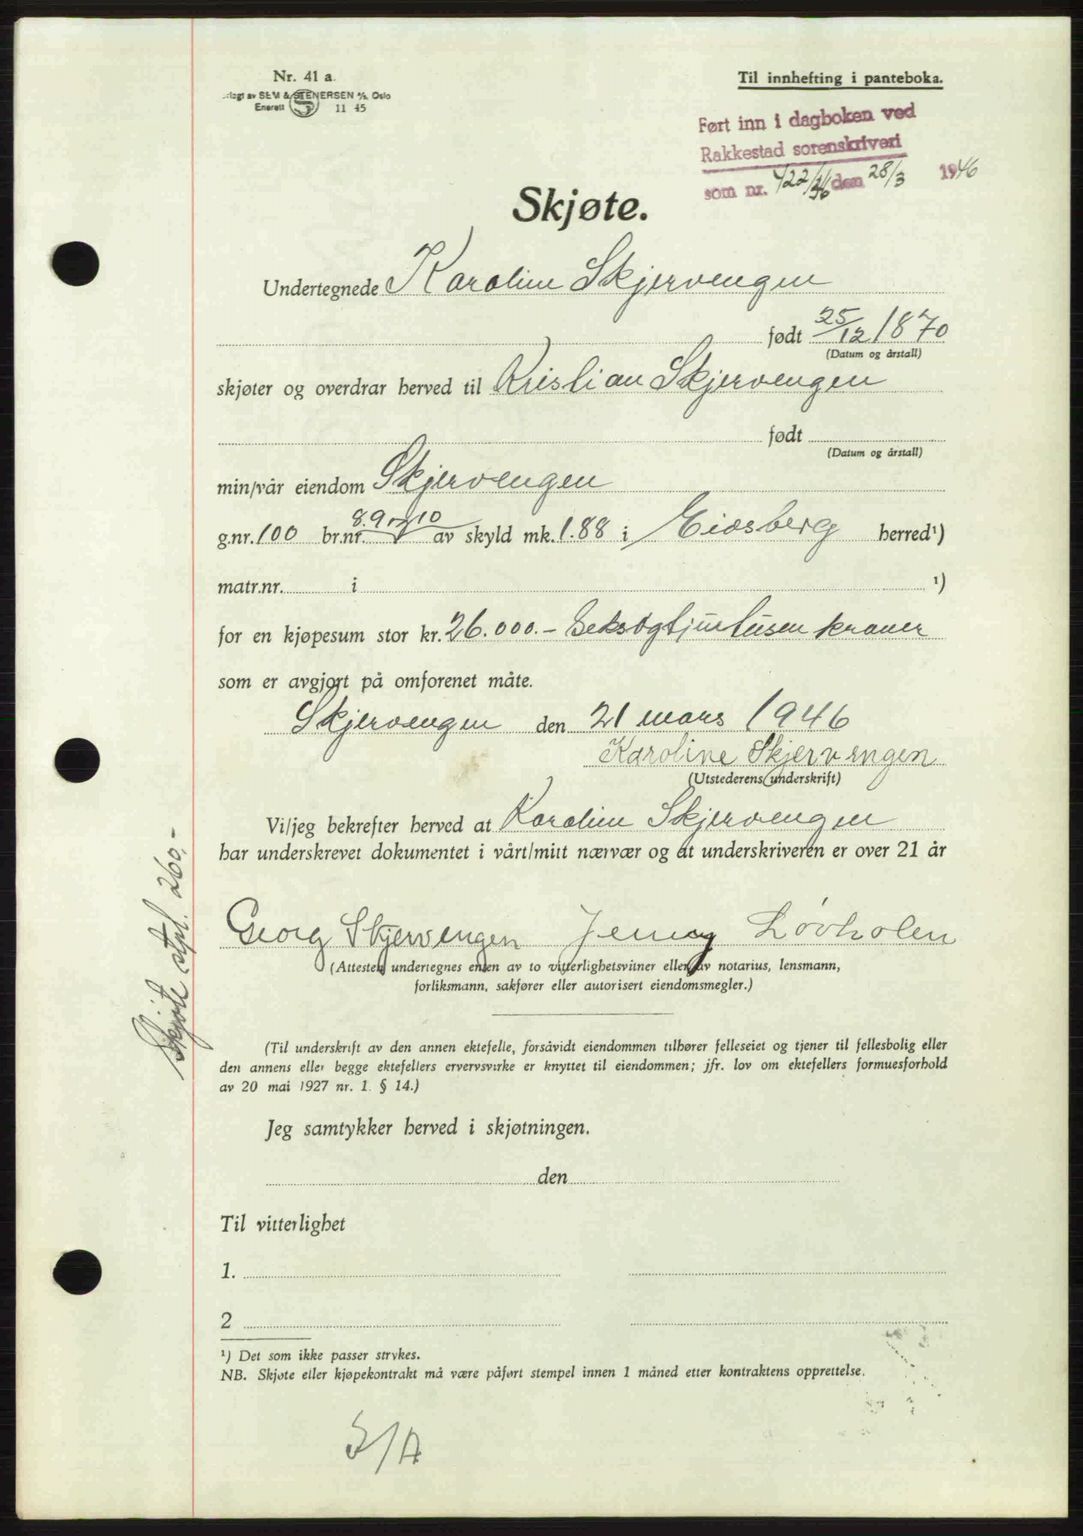 Nr. 41 a.
Til innhefting i panteboka.
SEM & STENERSEN A/S, Oslo
Enerett S 11 45
Ført inn i dagboken ved
Rakkestad sorenskriveri
som nr. 422/ den 28/3 1946
Skjøte.
Undertegnede Karoline Skjervengen
født 25/12 1870
(Datum og årstall)
skjøter og overdrar herved til Kristian Skjervengen
født
(Datum og årstall)
min/vår eiendom Skjervengen
g.nr. 100 br.nr. 8.9 og 10 av skyld mk. 1.88 i Eidsberg herred¹)
matr.nr. i ¹)
for en kjøpesum stor kr. 26.000.- Seksogtjuetusen kroner
som er avgjort på omforenet måte.
Skjervengen den 21 mars 1946
Karoline Skjervengen
(Utstederens underskrift)
Vi/jeg bekrefter herved at Karoline Skjervengen
har underskrevet dokumentet i vårt/mitt nærvær og at underskriveren er over 21 år
Georg Skjervengen Jenny Løvholen
(Attesten undertegnes enten av to vitterlighetsvitner eller av notarius, lensmann,
forliksmann, sakfører eller autorisert eiendomsmegler.)
Skjøte stpl. 260.-
(Til underskrift av den annen ektefelle, forsåvidt eiendommen tilhører felleseiet og tjener til fellesbolig eller
den annens eller begge ektefellers ervervsvirke er knyttet til eiendommen; jfr. lov om ektefellers formuesforhold
av 20 mai 1927 nr. 1. § 14.)
Jeg samtykker herved i skjøtningen.
den
Til vitterlighet
1.
2
¹) Det som ikke passer strykes.
NB. Skjøte eller kjøpekontrakt må være påført stempel innen 1 måned etter kontraktens opprettelse.